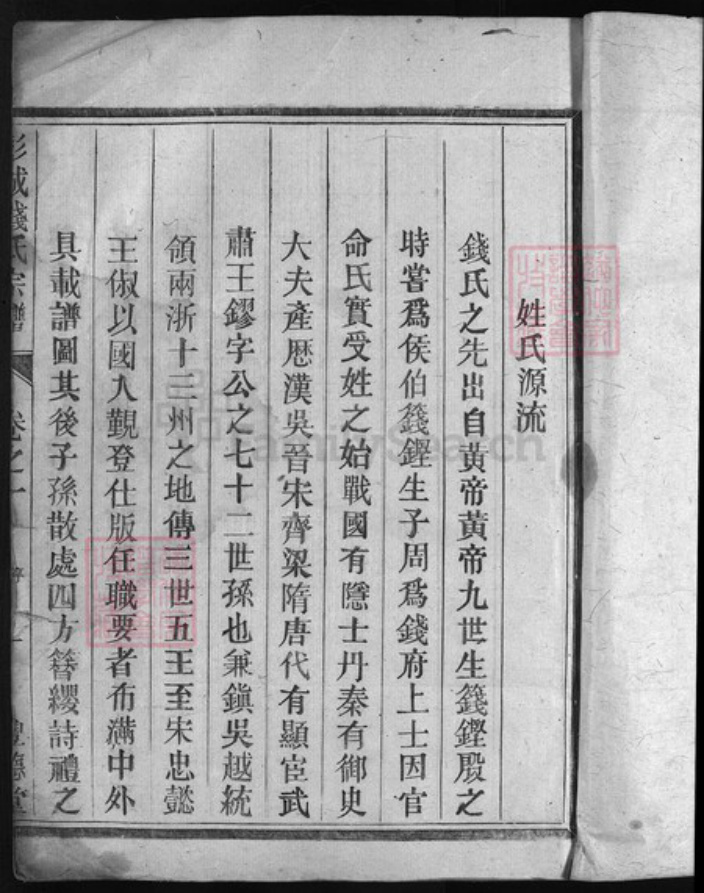 姓氏源流
錢氏之先出自黃帝黃帝九世生籛鏗殷之
時嘗爲侯伯籛鏗生子周爲錢府上士因官
命氏實受姓之始戰國有隱士丹秦有御史
大夫產歷漢吳晉宋齊梁隋唐代有顯宦武
肅王鏐字公之七十二世孫也兼鎭吳越統
領兩浙十三州之地傳三世五王至宋忠懿
王俶以國入覲登仕版任職要者布滿中外
具載譜圖其後子孫散處四方簪纓詩禮之
彭城錢氏宗譜 卷之一
FamilySearch